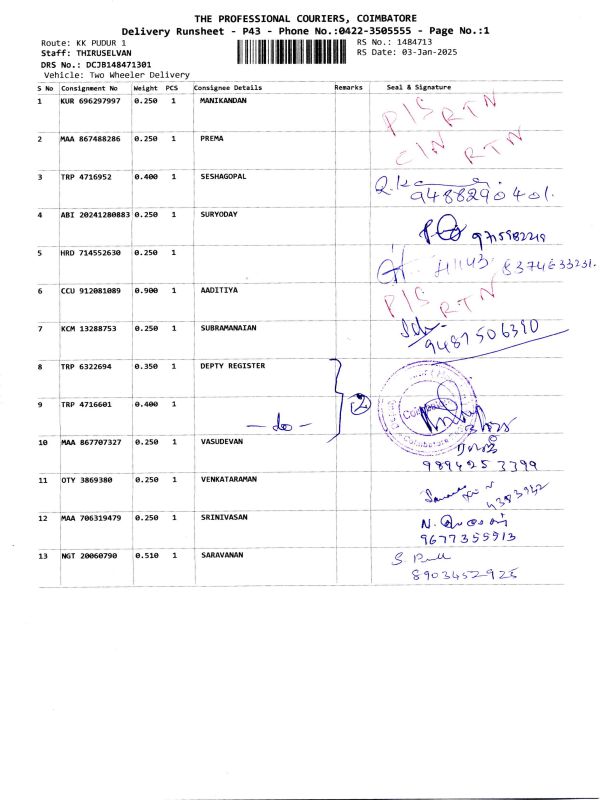 THE PROFESSIONAL COURIERS, COIMBATORE
Delivery Runsheet - P43 - Phone No.:0422-3505555 - Page No.:1
Route: KK PUDUR 1 RS No.: 1484713
Staff: THIRUSELVAN RS Date: 03-Jan-2025
DRS No.: DCJB148471301
Vehicle: Two Wheeler Delivery
S No Consignment No Weight PCS Consignee Details Remarks Seal & Signature
1 KUR 696297997 0.250 1 MANIKANDAN P/S RTN
2 MAA 867488286 0.250 1 PREMA C/N RTN
3 TRP 4716952 0.400 1 SESHAGOPAL
9488290401.
4 ABI 20241280883 0.250 1 SURYODAY 9715982219
5 HRD 714552630 0.250 1 8374633231.
6 CCU 912081089 0.900 1 AADITIYA P/S RTN
7 KCM 13288753 0.250 1 SUBRAMANAIAN
9487506390
8 TRP 6322694 0.350 1 DEPTY REGISTER
2
9 TRP 4716601 0.400 1
— do —
10 MAA 867707327 0.250 1 VASUDEVAN
9894253399
11 OTY 3869380 0.250 1 VENKATARAMAN
12 MAA 706319479 0.250 1 SRINIVASAN
9677355913
13 NGT 20060790 0.510 1 SARAVANAN
8903452925